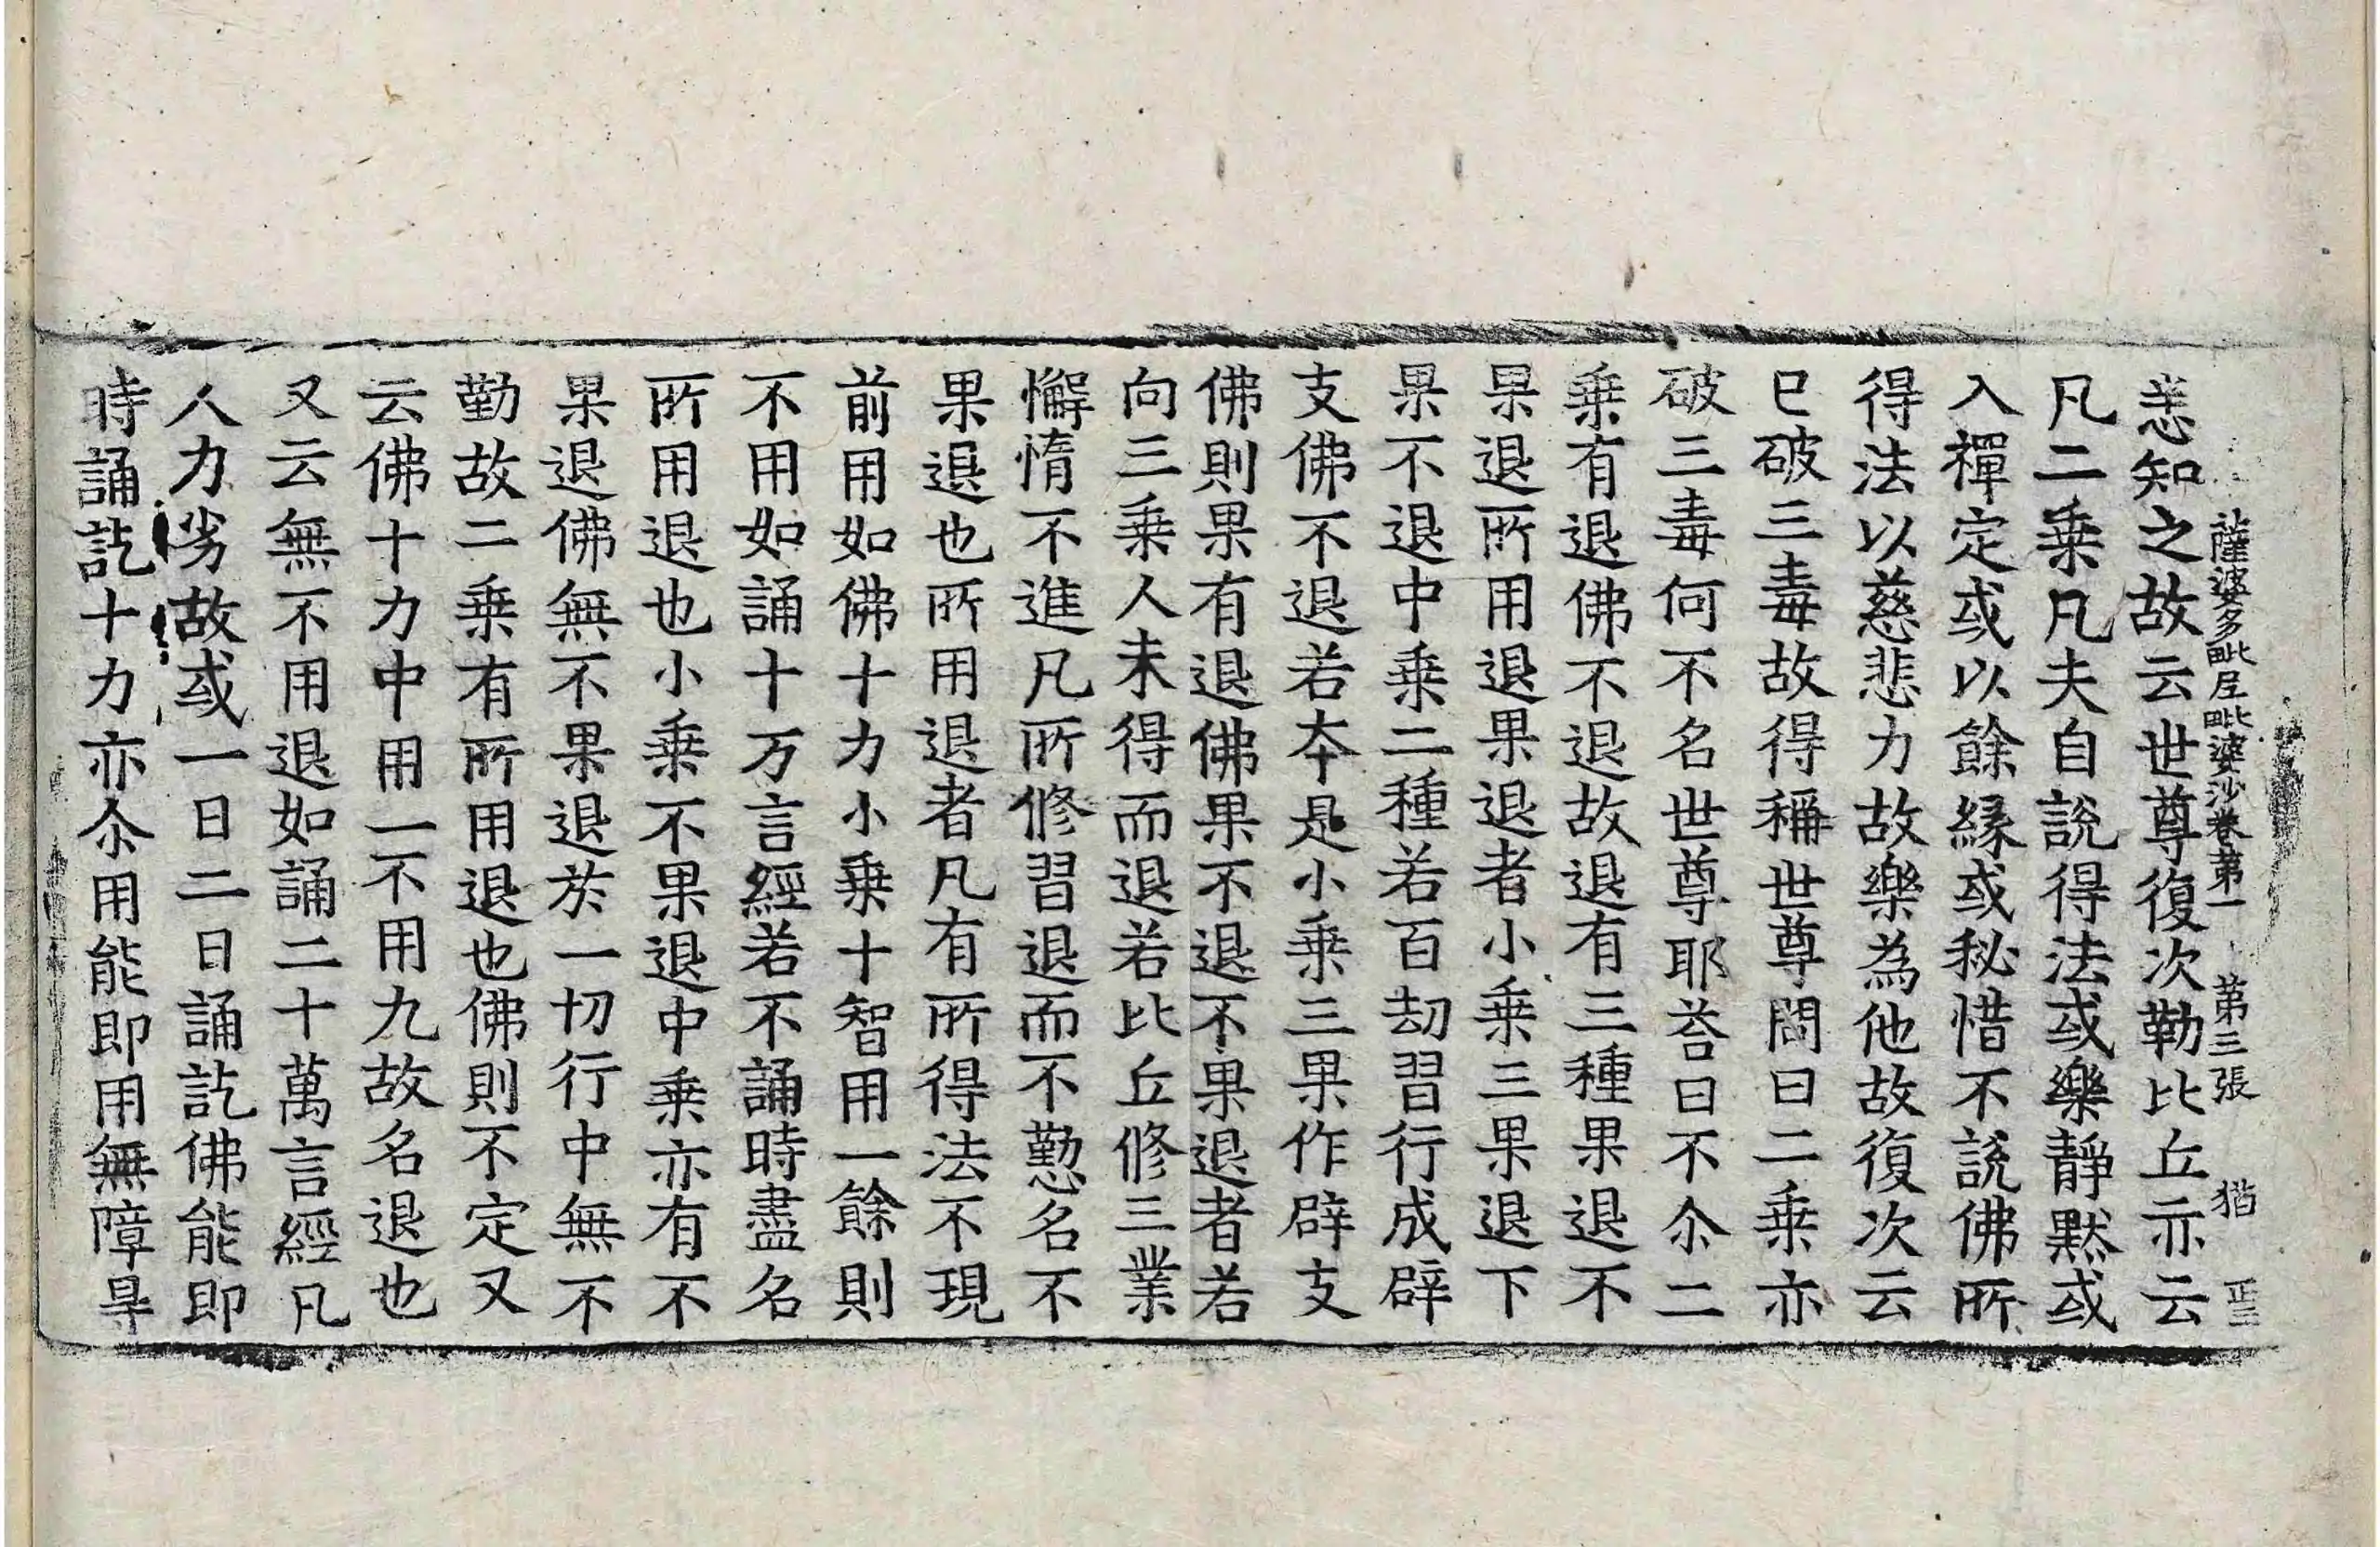 薩婆多毗尼毗婆沙卷第一 第三張 猶
恙知之故云世尊復次勒比丘亦云
凡二乗凡夫自說得法或樂靜黙或
入禪定或以餘縁或秘惜不說佛所
得法以慈悲力故樂為他故復次云
已破三毒故得稱世尊問曰二乗亦
破三毒何不名世尊耶荅曰不尒二
乗有退佛不退故退有三種果退不
果退所用退果退者小乗三果退下
果不退中乗二種若百劫習行成辟
支佛不退若夲是小乗三果作辟支
佛則果有退佛果不退不果退者若
向三乗人未得而退若比丘修三業
懈惰不進凡所修習退而不懃名不
果退也所用退者凡有所得法不現
前用如佛十力小乗十智用一餘則
不用如誦十万言經若不誦時盡名
所用退也小乗不果退中乗亦有不
果退佛無不果退於一切行中無不
勤故二乗有所用退也佛則不定又
云佛十力中用一不用九故名退也
又云無不用退如誦二十萬言經凡
人力劣故或一日二日誦訖佛能即
時誦訖十力亦尒用能即用無障㝵